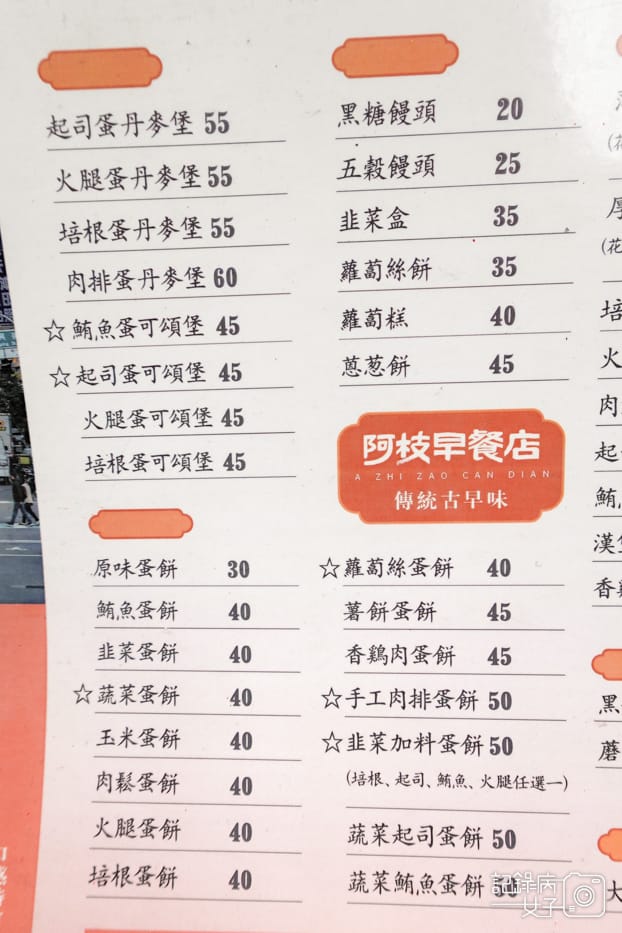 起司蛋丹麥堡 55
火腿蛋丹麥堡 55
培根蛋丹麥堡 55
肉排蛋丹麥堡 60
☆鮪魚蛋可頌堡 45
☆起司蛋可頌堡 45
火腿蛋可頌堡 45
培根蛋可頌堡 45
原味蛋餅 30
鮪魚蛋餅 40
韭菜蛋餅 40
☆蔬菜蛋餅 40
玉米蛋餅 40
肉鬆蛋餅 40
火腿蛋餅 40
培根蛋餅 40
黑糖饅頭 20
五穀饅頭 25
韭菜盒 35
蘿蔔絲餅 35
蘿蔔糕 40
蔥蔥餅 45
阿枝早餐店
A ZHI ZAO CAN DIAN
傳統古早味
☆蘿蔔絲蛋餅 40
薯餅蛋餅 45
香鷄肉蛋餅 45
☆手工肉排蛋餅 50
☆韭菜加料蛋餅 50
(培根、起司、鮪魚、火腿任選一)
蔬菜起司蛋餅 50
蔬菜鮪魚蛋餅 50
(花
厚
(花
培
火
肉
起
鮪
漢堡
香鷄
黑
蘑
大
記錄內女子